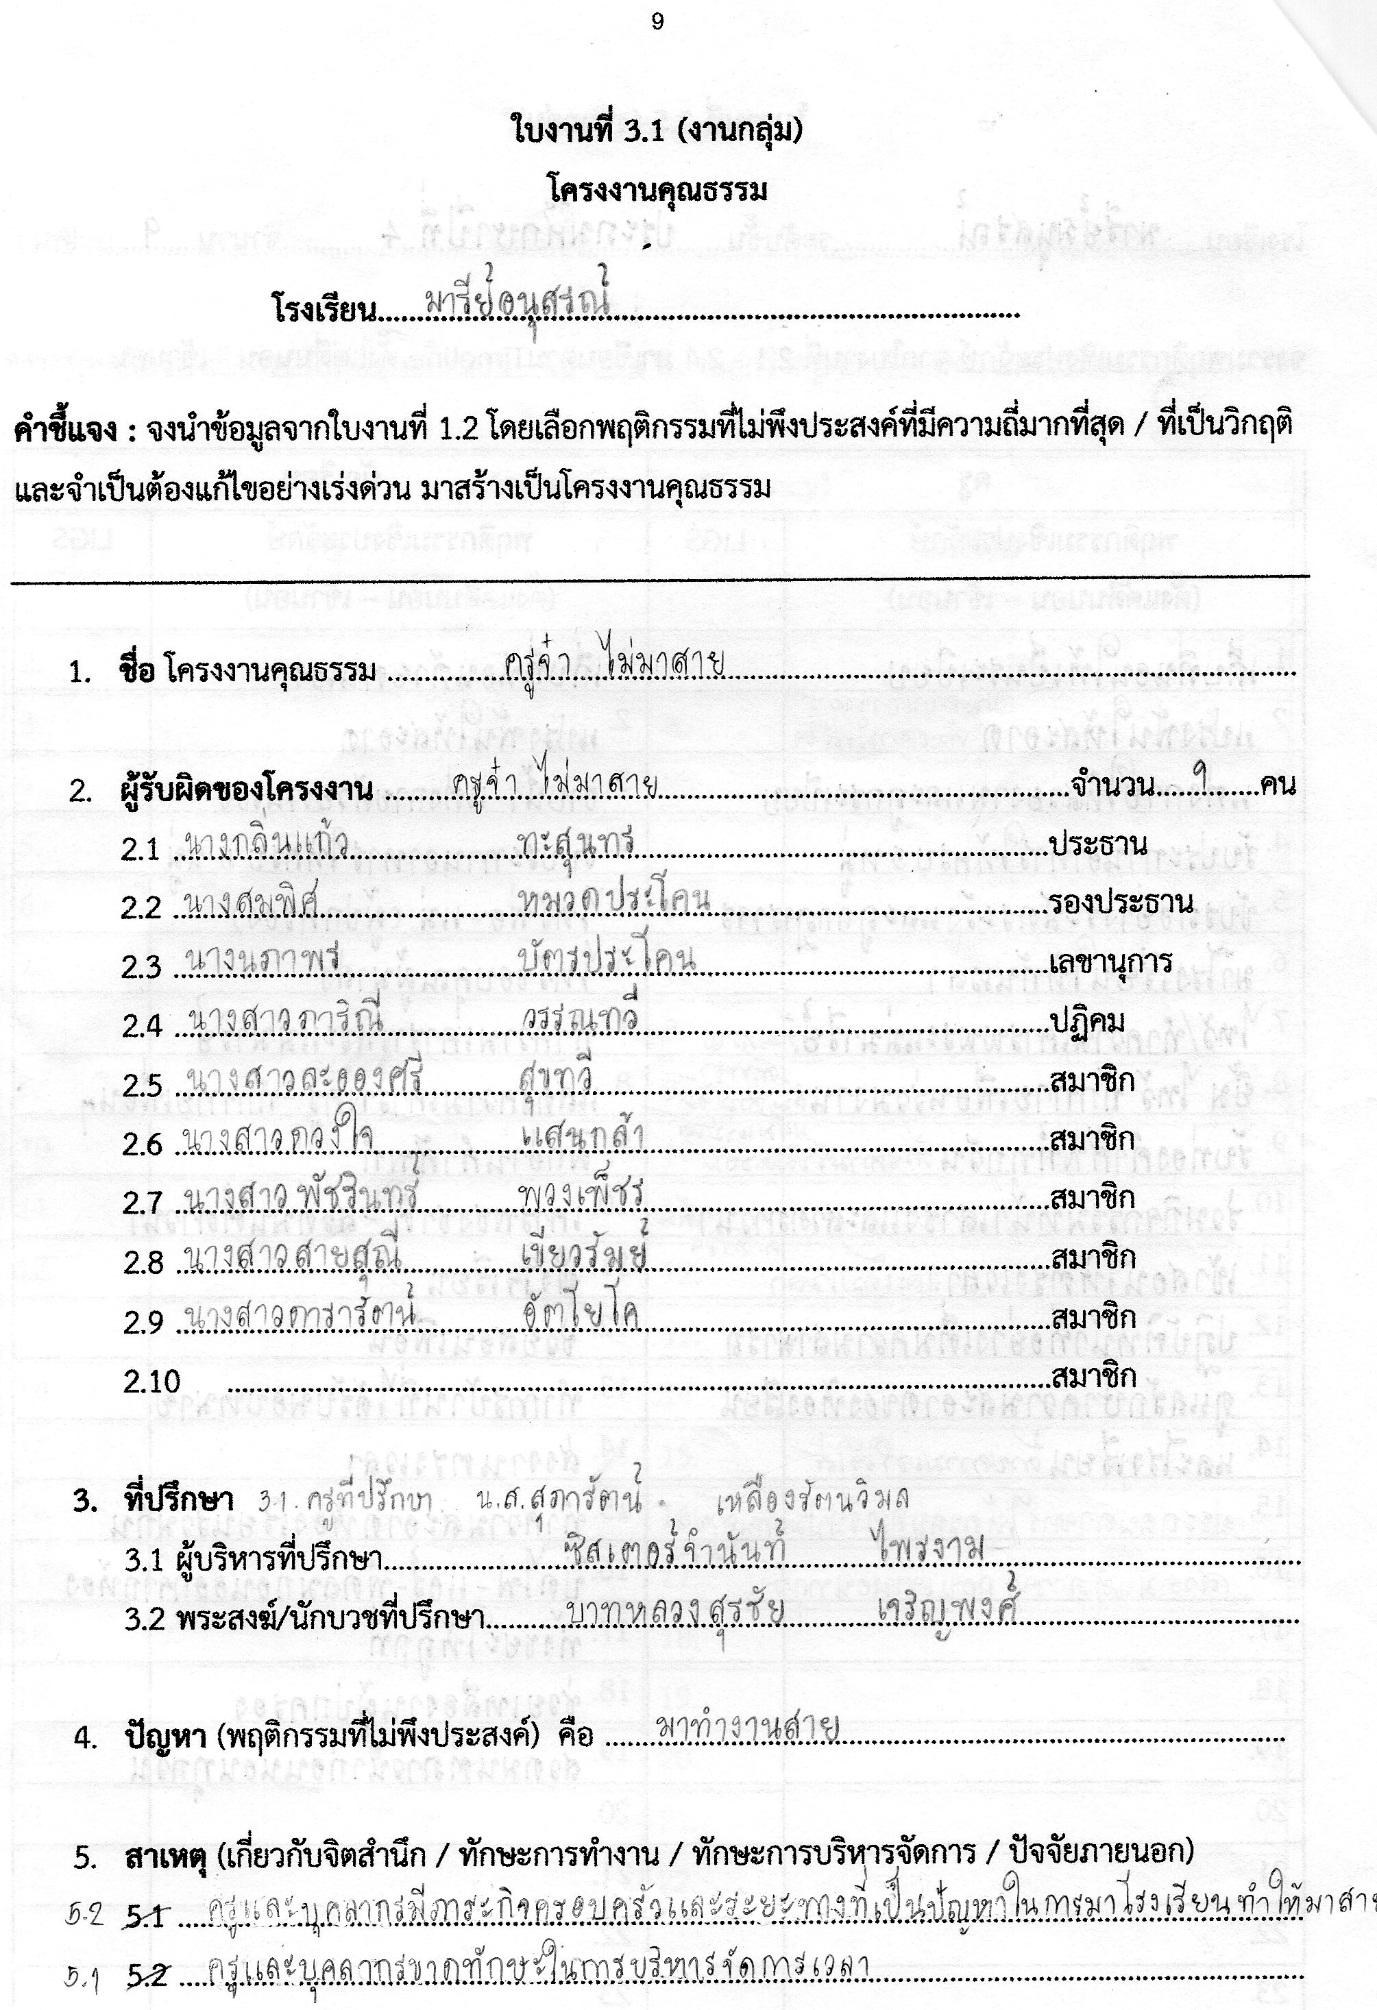 9
ใบงานที่ 3.1 (งานกลุ่ม)
โครงงานคุณธรรม
โรงเรียน.....มารีย์อนุสรณ์.....
คำชี้แจง : จงนำข้อมูลจากใบงานที่ 1.2 โดยเลือกพฤติกรรมที่ไม่พึงประสงค์ที่มีความถี่มากที่สุด / ที่เป็นวิกฤติ
และจำเป็นต้องแก้ไขอย่างเร่งด่วน มาสร้างเป็นโครงงานคุณธรรม
1. ชื่อ โครงงานคุณธรรม .....ครูจ๋า ไม่มาสาย.....
2. ผู้รับผิดของโครงงาน .....ครูจ๋า ไม่มาสาย.....จำนวน.....9.....คน
2.1 นางกลิ่นแก้ว ทะสุนทร ประธาน
2.2 นางสมพิศ หมวดประโคน รองประธาน
2.3 นางนภาพร บัตรประโคน เลขานุการ
2.4 นางสาวภาริณี วรรณทวี ปฏิคม
2.5 นางสาวละอองศรี สุขทวี สมาชิก
2.6 นางสาวดวงใจ แสนกล้า สมาชิก
2.7 นางสาวพัชรินทร์ พวงเพ็ชร สมาชิก
2.8 นางสาวสายสุณี เขียวรัมย์ สมาชิก
2.9 นางสาวดารารัตน์ อัตโยโค สมาชิก
2.10 .....สมาชิก
3. ที่ปรึกษา 3.1. ครูที่ปรึกษา น.ส.สุภารัตน์ เหลืองรัตนวิมล
3.1 ผู้บริหารที่ปรึกษา.....ซิสเตอร์จำนันท์ ไพรงาม.....
3.2 พระสงฆ์/นักบวชที่ปรึกษา.....บาทหลวงสุรชัย เจริญพงศ์.....
4. ปัญหา (พฤติกรรมที่ไม่พึงประสงค์) คือ .....มาทำงานสาย.....
5. สาเหตุ (เกี่ยวกับจิตสำนึก / ทักษะการทำงาน / ทักษะการบริหารจัดการ / ปัจจัยภายนอก)
5.2 5.1 ครูและบุคลากรมีภาระกิจครอบครัวและระยะทางที่เป็นปัญหาในการมาโรงเรียน ทำให้มาสาย
5.1 5.2 ครูและบุคลากรขาดทักษะในการบริหารจัดการเวลา